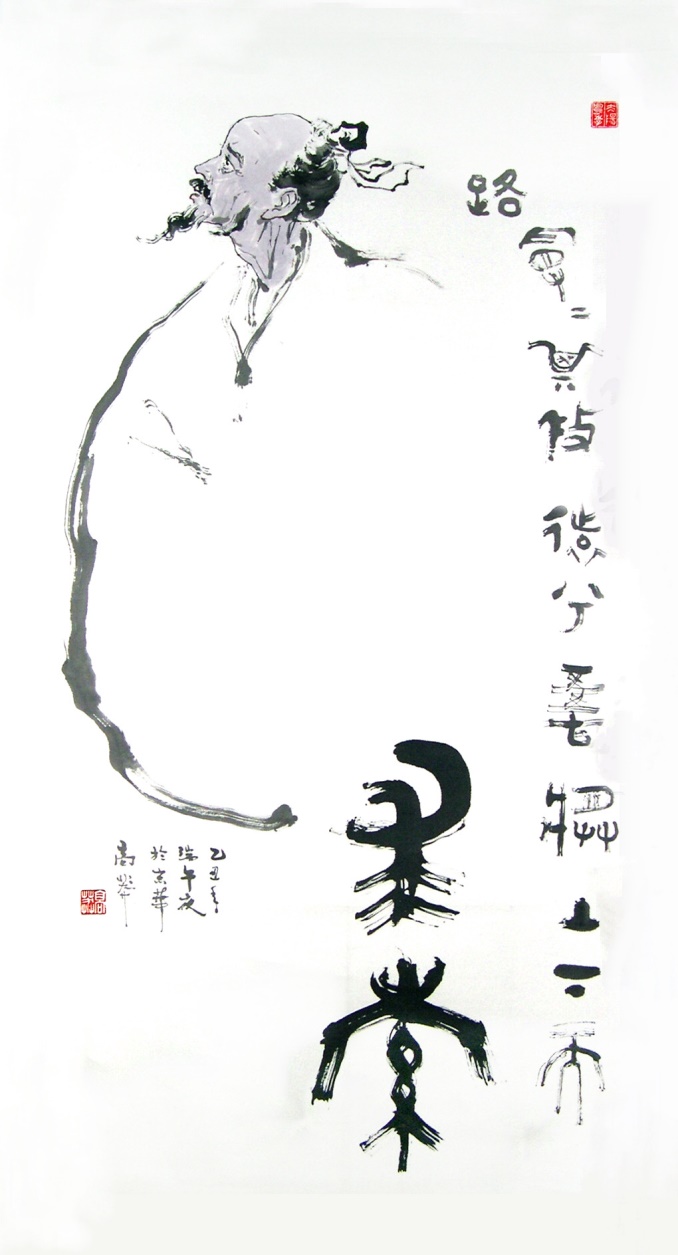 路
曼〻其修遠兮吾將上下而
求索
乙丑年
端午夜
於京華
高